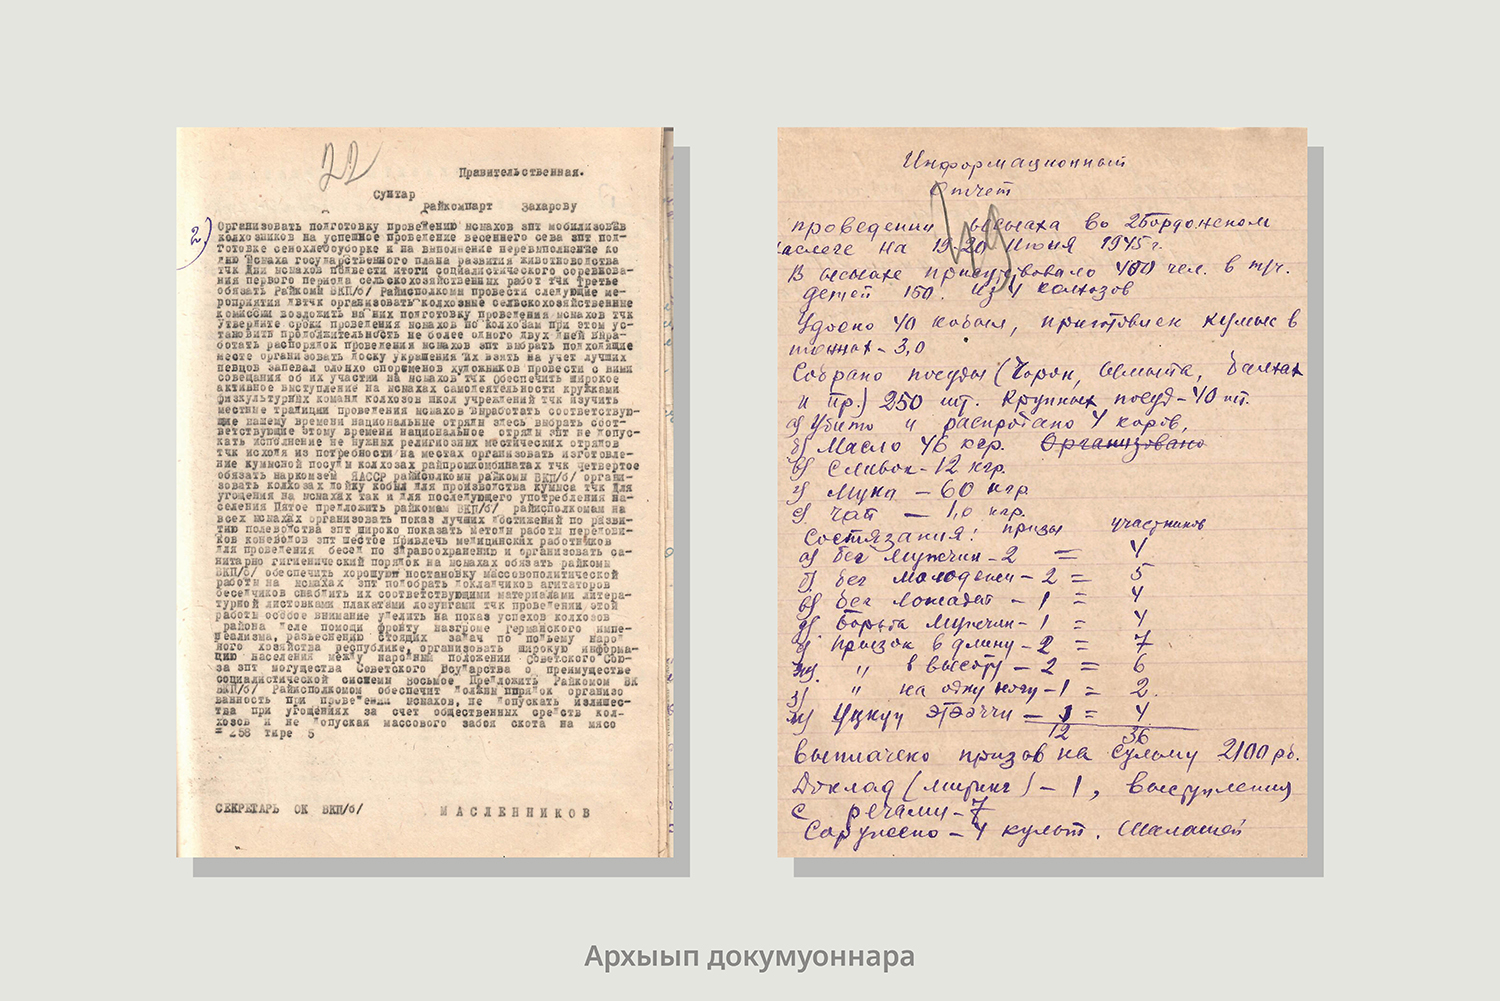 22
Правительственная.
Сунтар
райкомпарт Захарову
2)
Организовать подготовку проведению ысыахов зпт мобилизовав
колхозников на успешное проведение весеннего сева зпт под-
готовке сеноxлебоуборке и на выполнение перевыполнение ко
дню ысыаха государственного плана развития животноводства
тчк Дни ысыахов подвести итоги социалистического соревнова-
ния первого периода сельскохозяйственных работ тчк Третье
обязать Райкомы ВКП/б/ Райисполкомы провести следующие ме-
роприятия двтчк организовать колхозные сельскохозяйственные
комиссии возложить на них подготовку проведения ысыахов тчк
Утвердите сроки проведения ысыахов по колхозам при этом ус-
тановить продолжительность не более одного двух дней выра-
ботать распорядок проведения ысыахов зпт выбрать подходящие
месте организовать доску украшения их взять на учет лучших
певцов запевал олонхо спорсменов художников провести с ними
совещания об их участии на ысыахов тчк Обеспечить широкое
активное выступление на ысыахах самодеятельности кружками
физкультурных команд колхозов школ учреждений тчк изучить
местные традиции проведения ысыахов выработать соответствую-
щие нашему времени национальные отряды здесь выбрать соот-
ветствующие этому времени национальное отряды зпт не допус-
кать исполнение не нужных религиозных местических отрядов
тчк исходя из потребности на местах организовать изготовле-
ние кумысной посуды колхозах райпромкомбинатах тчк четвертое
обязать наркомзем ЯАССР райисполкомы райкомы ВКП/б/ органи-
зовать колхозах дойку кобыл для производства кумыса тчк Для
угощения на ысыахах так и для последующего употребления на-
селения Пятое предложить райкомам ВКП/б/ райисполкомам на
всех ысыахах организовать показ лучших достижений по разви-
тию полеводства зпт широко показать методы работы передови-
ков коневодов зпт шестое привлечь медицинских работников
для проведения бесед по здравоохранению и организовать са-
нитарно гигиенический порядок на ысыахах обязать райкомы
ВКП/б/ обеспечить хорошую постановку массовополитической
работы на ысыахах зпт подобрать докладчиков агитаторов
беседчиков снабдить их соответствующими материалами литера-
турной листовками плакатами лозунгами тчк проведении этой
работы особое внимание уделить на показ успехов колхозов
района деле помощи фронту разгроме Германского импе-
реализма, разъеснению стоящих задач по подъему народ
ного хозяйства республике, организовать широкую информа-
цию населения между народным положении Советского Сою-
за зпт могущества Советского Осударства о преимуществе
социалистической системы Восьмое Предложить Райкомом ВК
ВКП/б/ Райисполкомом обеспечит должный порядок организо
ванность при проведении ысыахов, не допускать излишес-
тва при угощениях за счет общественных средств кол-
хозов и не допуская массового забоя скота на мясо
= 258 тире 5
СЕКРЕТАРЬ ОК ВКП/б/ МАСЛЕННИКОВ
Информационный
отчет
проведении ысыаха во 2бордонском
наслеге на 19-20 июня 1945 г.
В ысыахе присутствовало 400 чел. в т/ч.
детей 150. из 4 колхозов
Удоено 40 кобыл, приготовлен кумыс в
тоннах - 3,0
Собрано посуды (Чорон, Ымыта,
и пр.) 250 шт. Крупных посуд - 40 шт.
а) Убито и распродано 4 коров,
б) Масло 46 кгр. Организовано
в) Сливок - 12 кгр.
г) Мука - 60 кгр.
д) Чай - 1,0 кгр.
Состязания: призы участников
а) бег мужчин - 2 = 4
б) бег молодежи - 2 = 5
в) бег лошадей - 1 = 4
д) Борьба мужчин - 1 = 4
е) прыжок в длину - 2 = 7
ж) " в высоту - 2 = 6
з) " на одну ногу - 1 = 2.
и) Үҥкүү этээччи - 1 = 4
12 36
Выплачено призов на сумму 2100 рб.
Доклад (митинг) - 1, выступления
с речами - 7
Соружено - 4 культ. Шалашей
Архыып докумуоннара